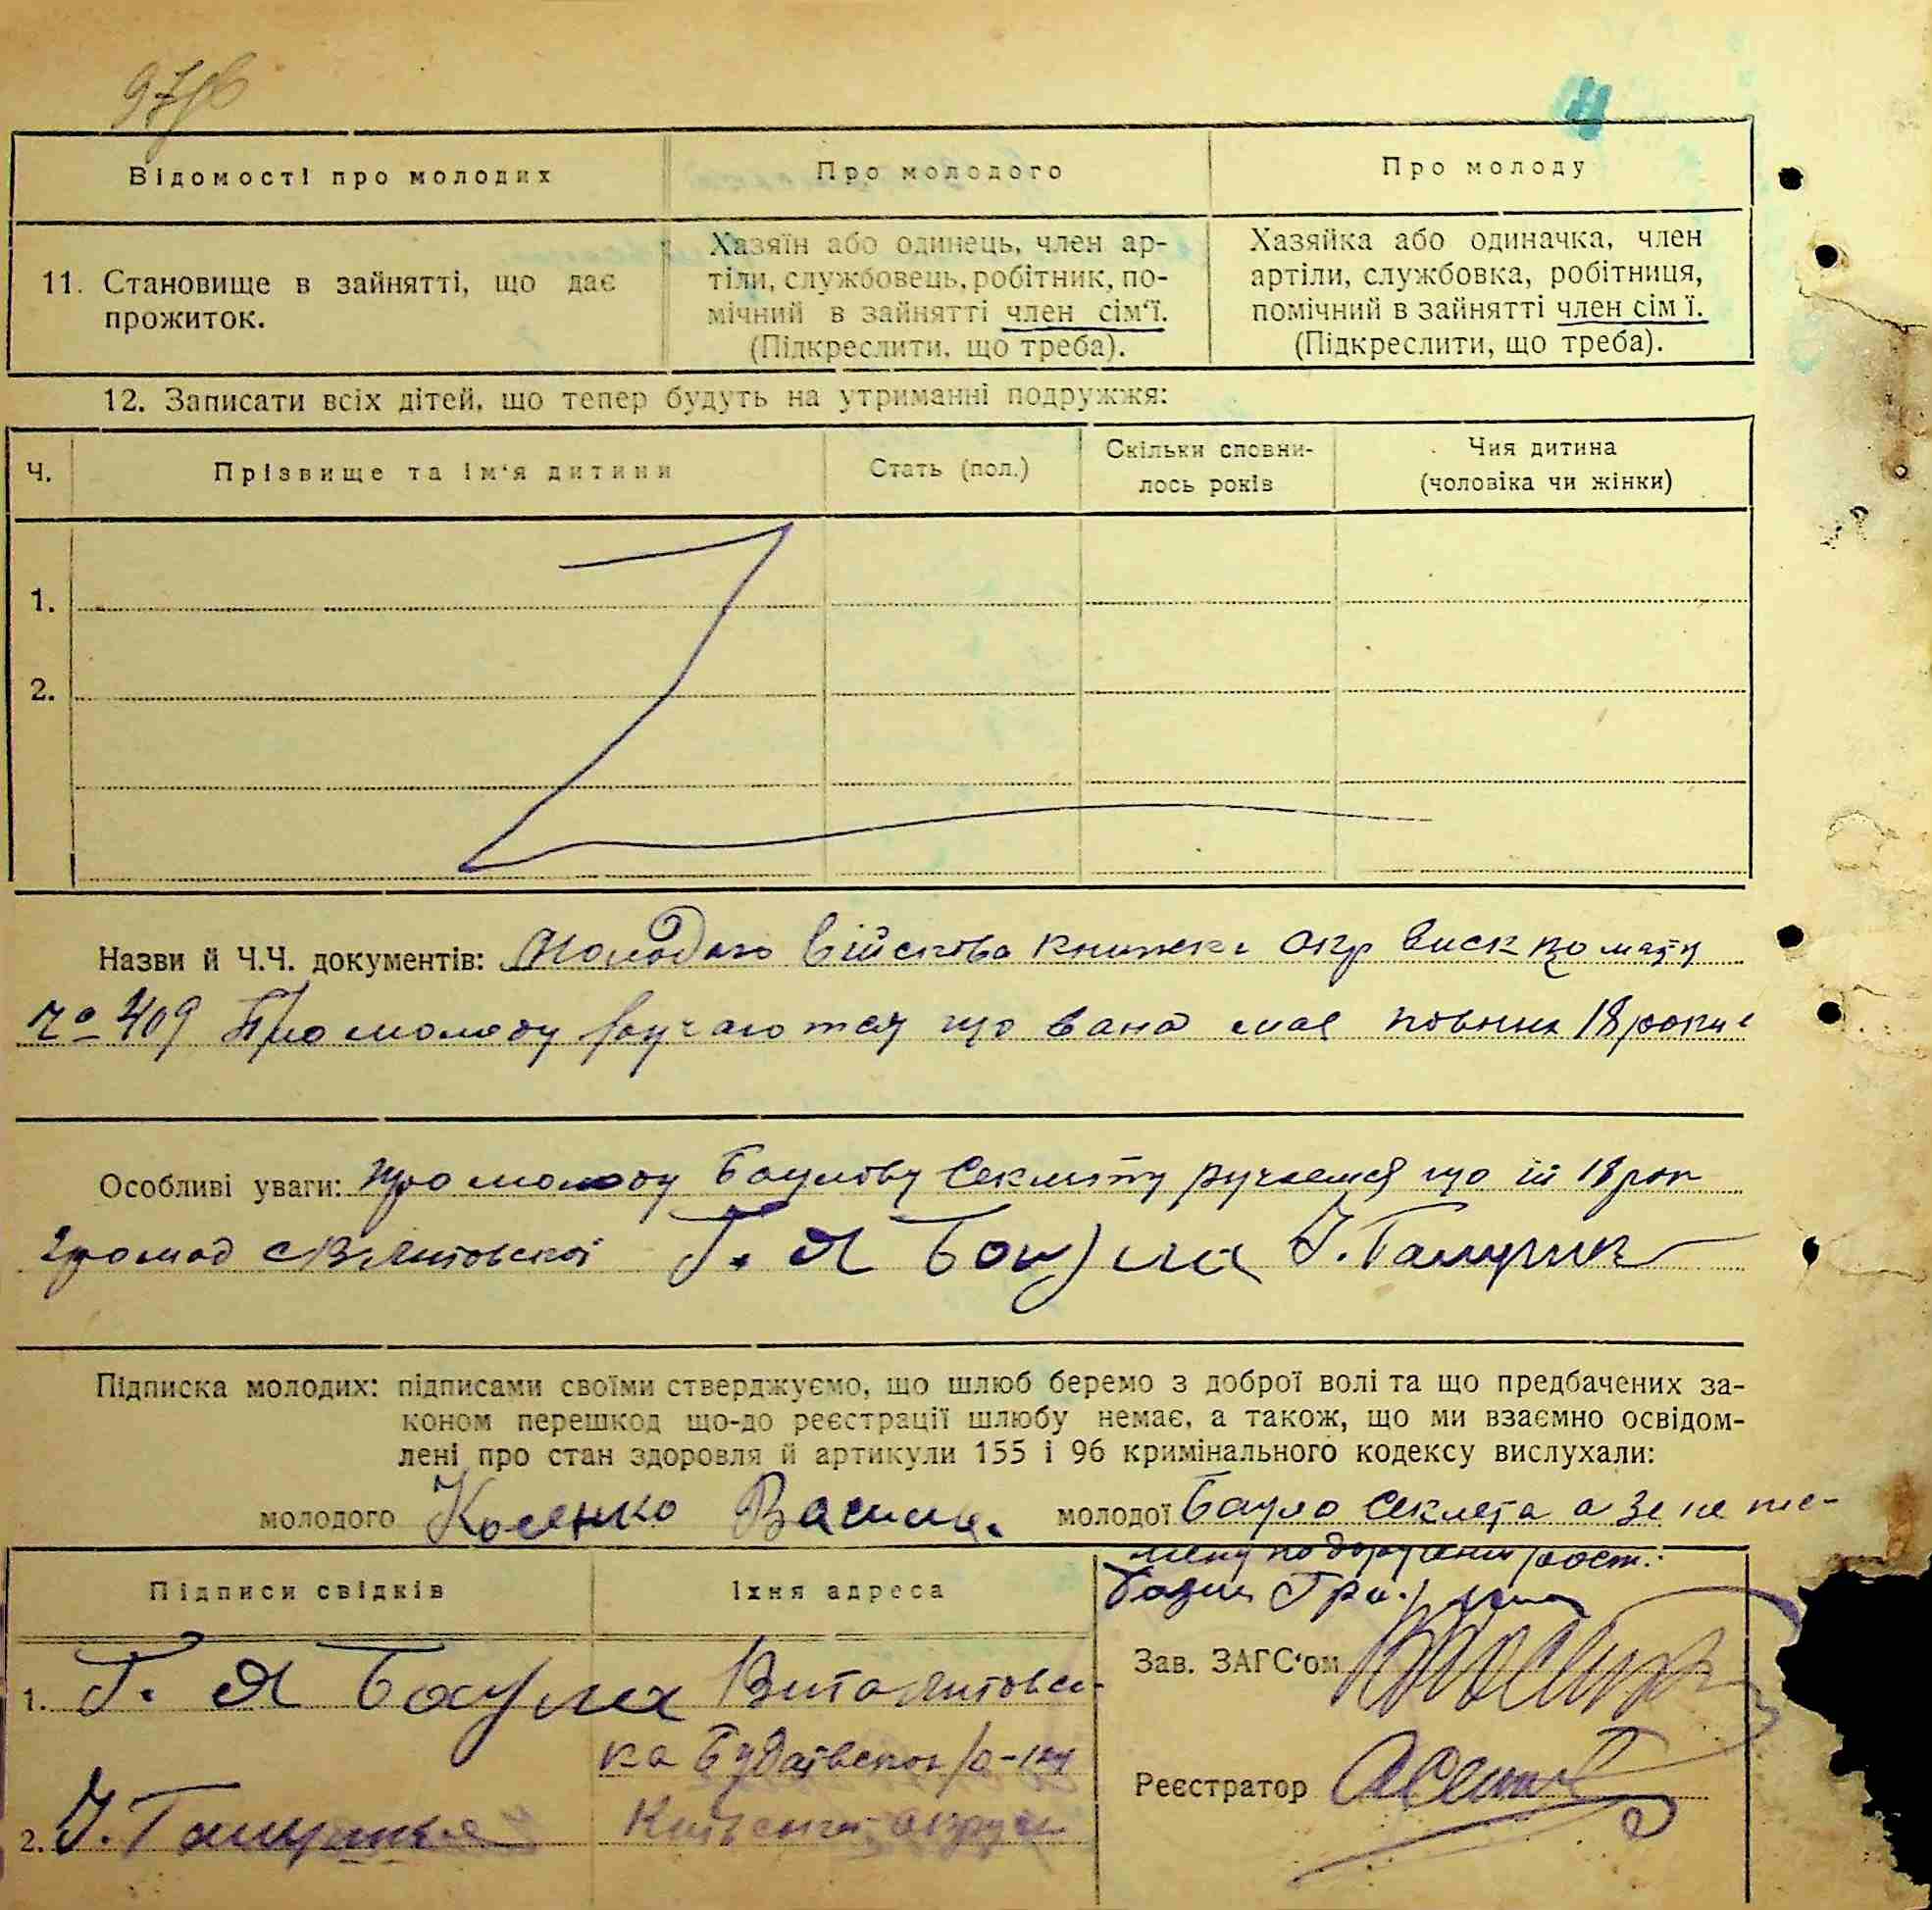 Відомості про молодих
Про молодого
Про молоду
11. Становище в зайнятті, що дає
прожиток.
Хазяїн або одинець, член ар-
тіли, службовець, робітник, по-
мічний в зайнятті член сім'ї.
(Підкреслити, що треба).
Хазяйка або одиначка, член
артіли, службовка, робітниця,
помічний в зайнятті член сім ї.
(Підкреслити, що треба).
12. Записати всіх дітей, що тепер будуть на утриманні подружжя:
Ч.
Прізвище та ім'я дитини
Стать (пол.)
Скільки сповни-
лось років
Чия дитина
(чоловіка чи жінки)
1.
2.
Назви й Ч.Ч. документів: Молодого військова книжка окр
409 Про молоду ручаются що вана має повних 18 років
Особливі уваги: Про молоду Баулову Секлету ручаемся що їй 18 рок
громад Г. Я Баула
Підписка молодих: підписами своїми стверджуємо, що шлюб беремо з доброї волі та що предбачених за-
коном перешкод що-до реєстрації шлюбу немає, а також, що ми взаємно освідом-
лені про стан здоровля й артикули 155 і 96 кримінального кодексу вислухали:
молодого Косенко Василь молодої Баула Секлета а за не пис-
Підписи свідків
Їхня адреса
1. Г. Я Баула
ка Будаївского р-ну
Київської округи
2.
Зав. ЗАГС'ом
Реєстратор